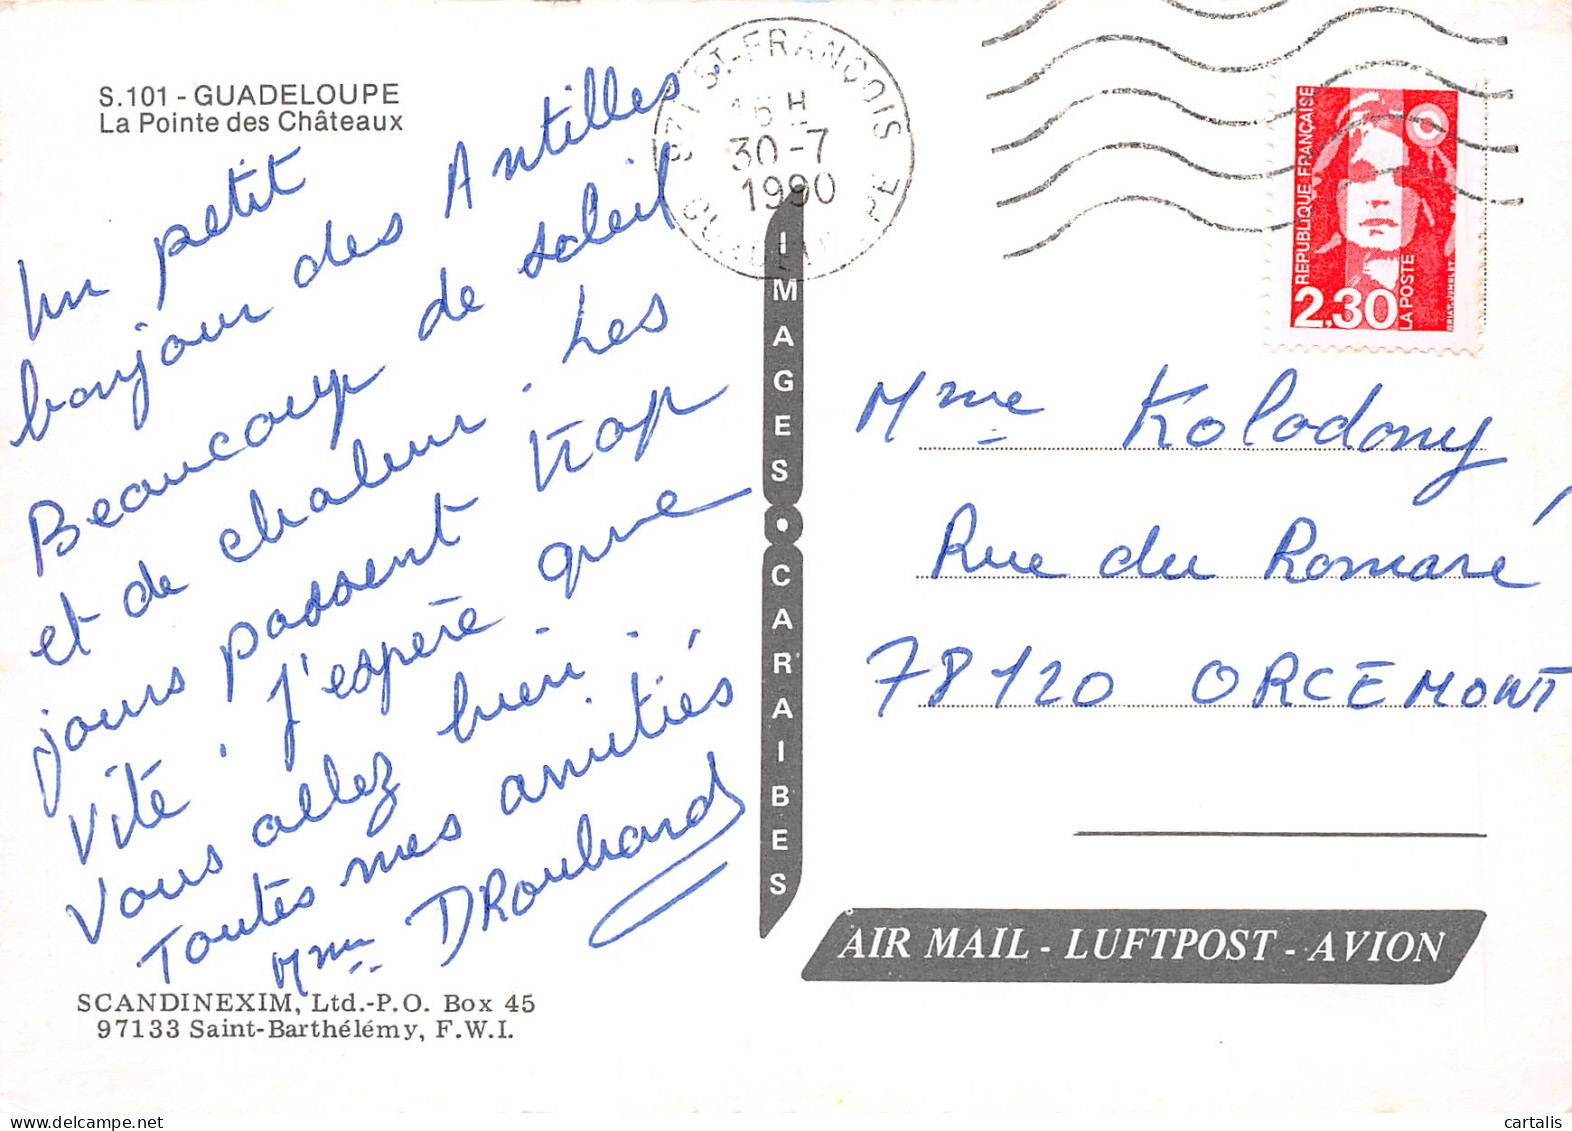 S.101 - GUADELOUPE
La Pointe des Châteaux
Un petit
bonjour des Antilles.
Beaucoup de soleil
et de chaleur. Les
jours passent trop
vite. J'espère que
vous allez bien.
Toutes mes amitiés
Mme DRouhard
SCANDINEXIM, Ltd.-P.O. Box 45
97133 Saint-Barthélémy, F.W.I.
IMAGES CARAIBES
971 ST-FRANÇOIS
16 H
30-7
1990
GUADELOUPE
REPUBLIQUE FRANÇAISE
2,30
LA POSTE
BRIAT-JUMELET
Mme Kolodony
Rue du Romaré
78120 ORCEMONT
AIR MAIL - LUFTPOST - AVION
delcampe.net
cartalis